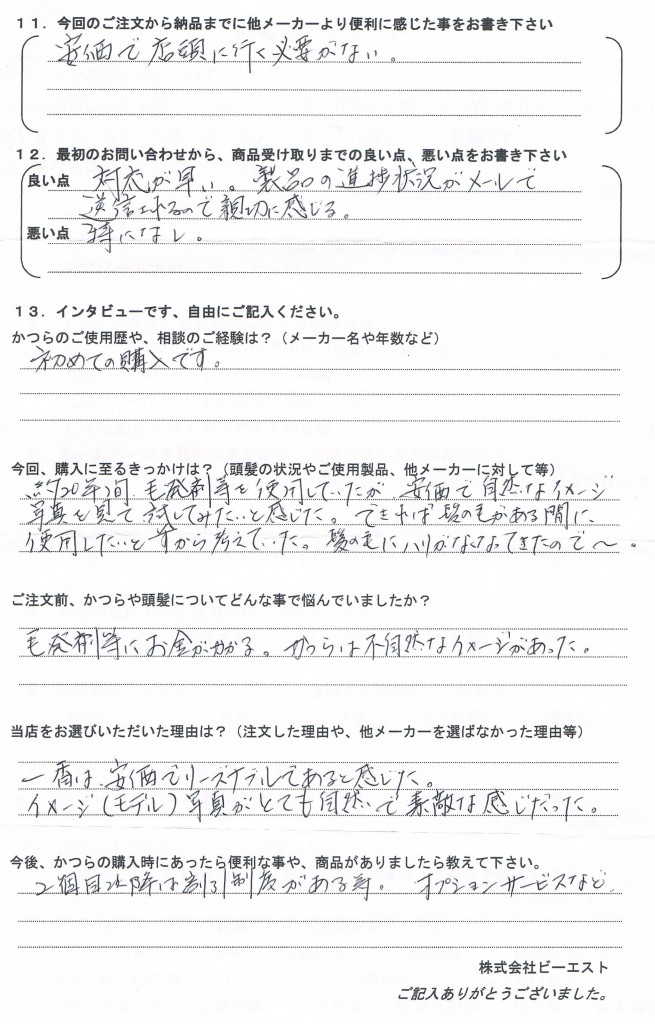 11．今回のご注文から納品までに他メーカーより便利に感じた事をお書き下さい
安価で店頭に行く必要がない。
12．最初のお問い合わせから、商品受け取りまでの良い点、悪い点をお書き下さい
良い点 対応が早い。製品の進捗状況がメールで
送信されるので親切に感じる。
悪い点 特になし。
13．インタビューです、自由にご記入ください。
かつらのご使用歴や、相談のご経験は？（メーカー名や年数など）
初めての購入です。
今回、購入に至るきっかけは？（頭髪の状況やご使用製品、他メーカーに対して等）
約20年間、毛発剤等を使用していたが、安価で自然なイメージ
写真を見て試してみたいと感じた。できれば髪の毛がある間に
使用したいと前から考えていた。髪の毛にハリがなくなってきたので～。
ご注文前、かつらや頭髪についてどんな事で悩んでいましたか？
毛発剤等にお金がかかる。かつらは不自然なイメージがあった。
当店をお選びいただいた理由は？（注文した理由や、他メーカーを選ばなかった理由等）
一番は、安価でリーズナブルであると感じた。
イメージ(モデル)写真がとても自然で素敵な感じだった。
今後、かつらの購入時にあったら便利な事や、商品がありましたら教えて下さい。
2個目以降は割引制度がある等。オプションサービスなど、
株式会社ビーエスト
ご記入ありがとうございました。